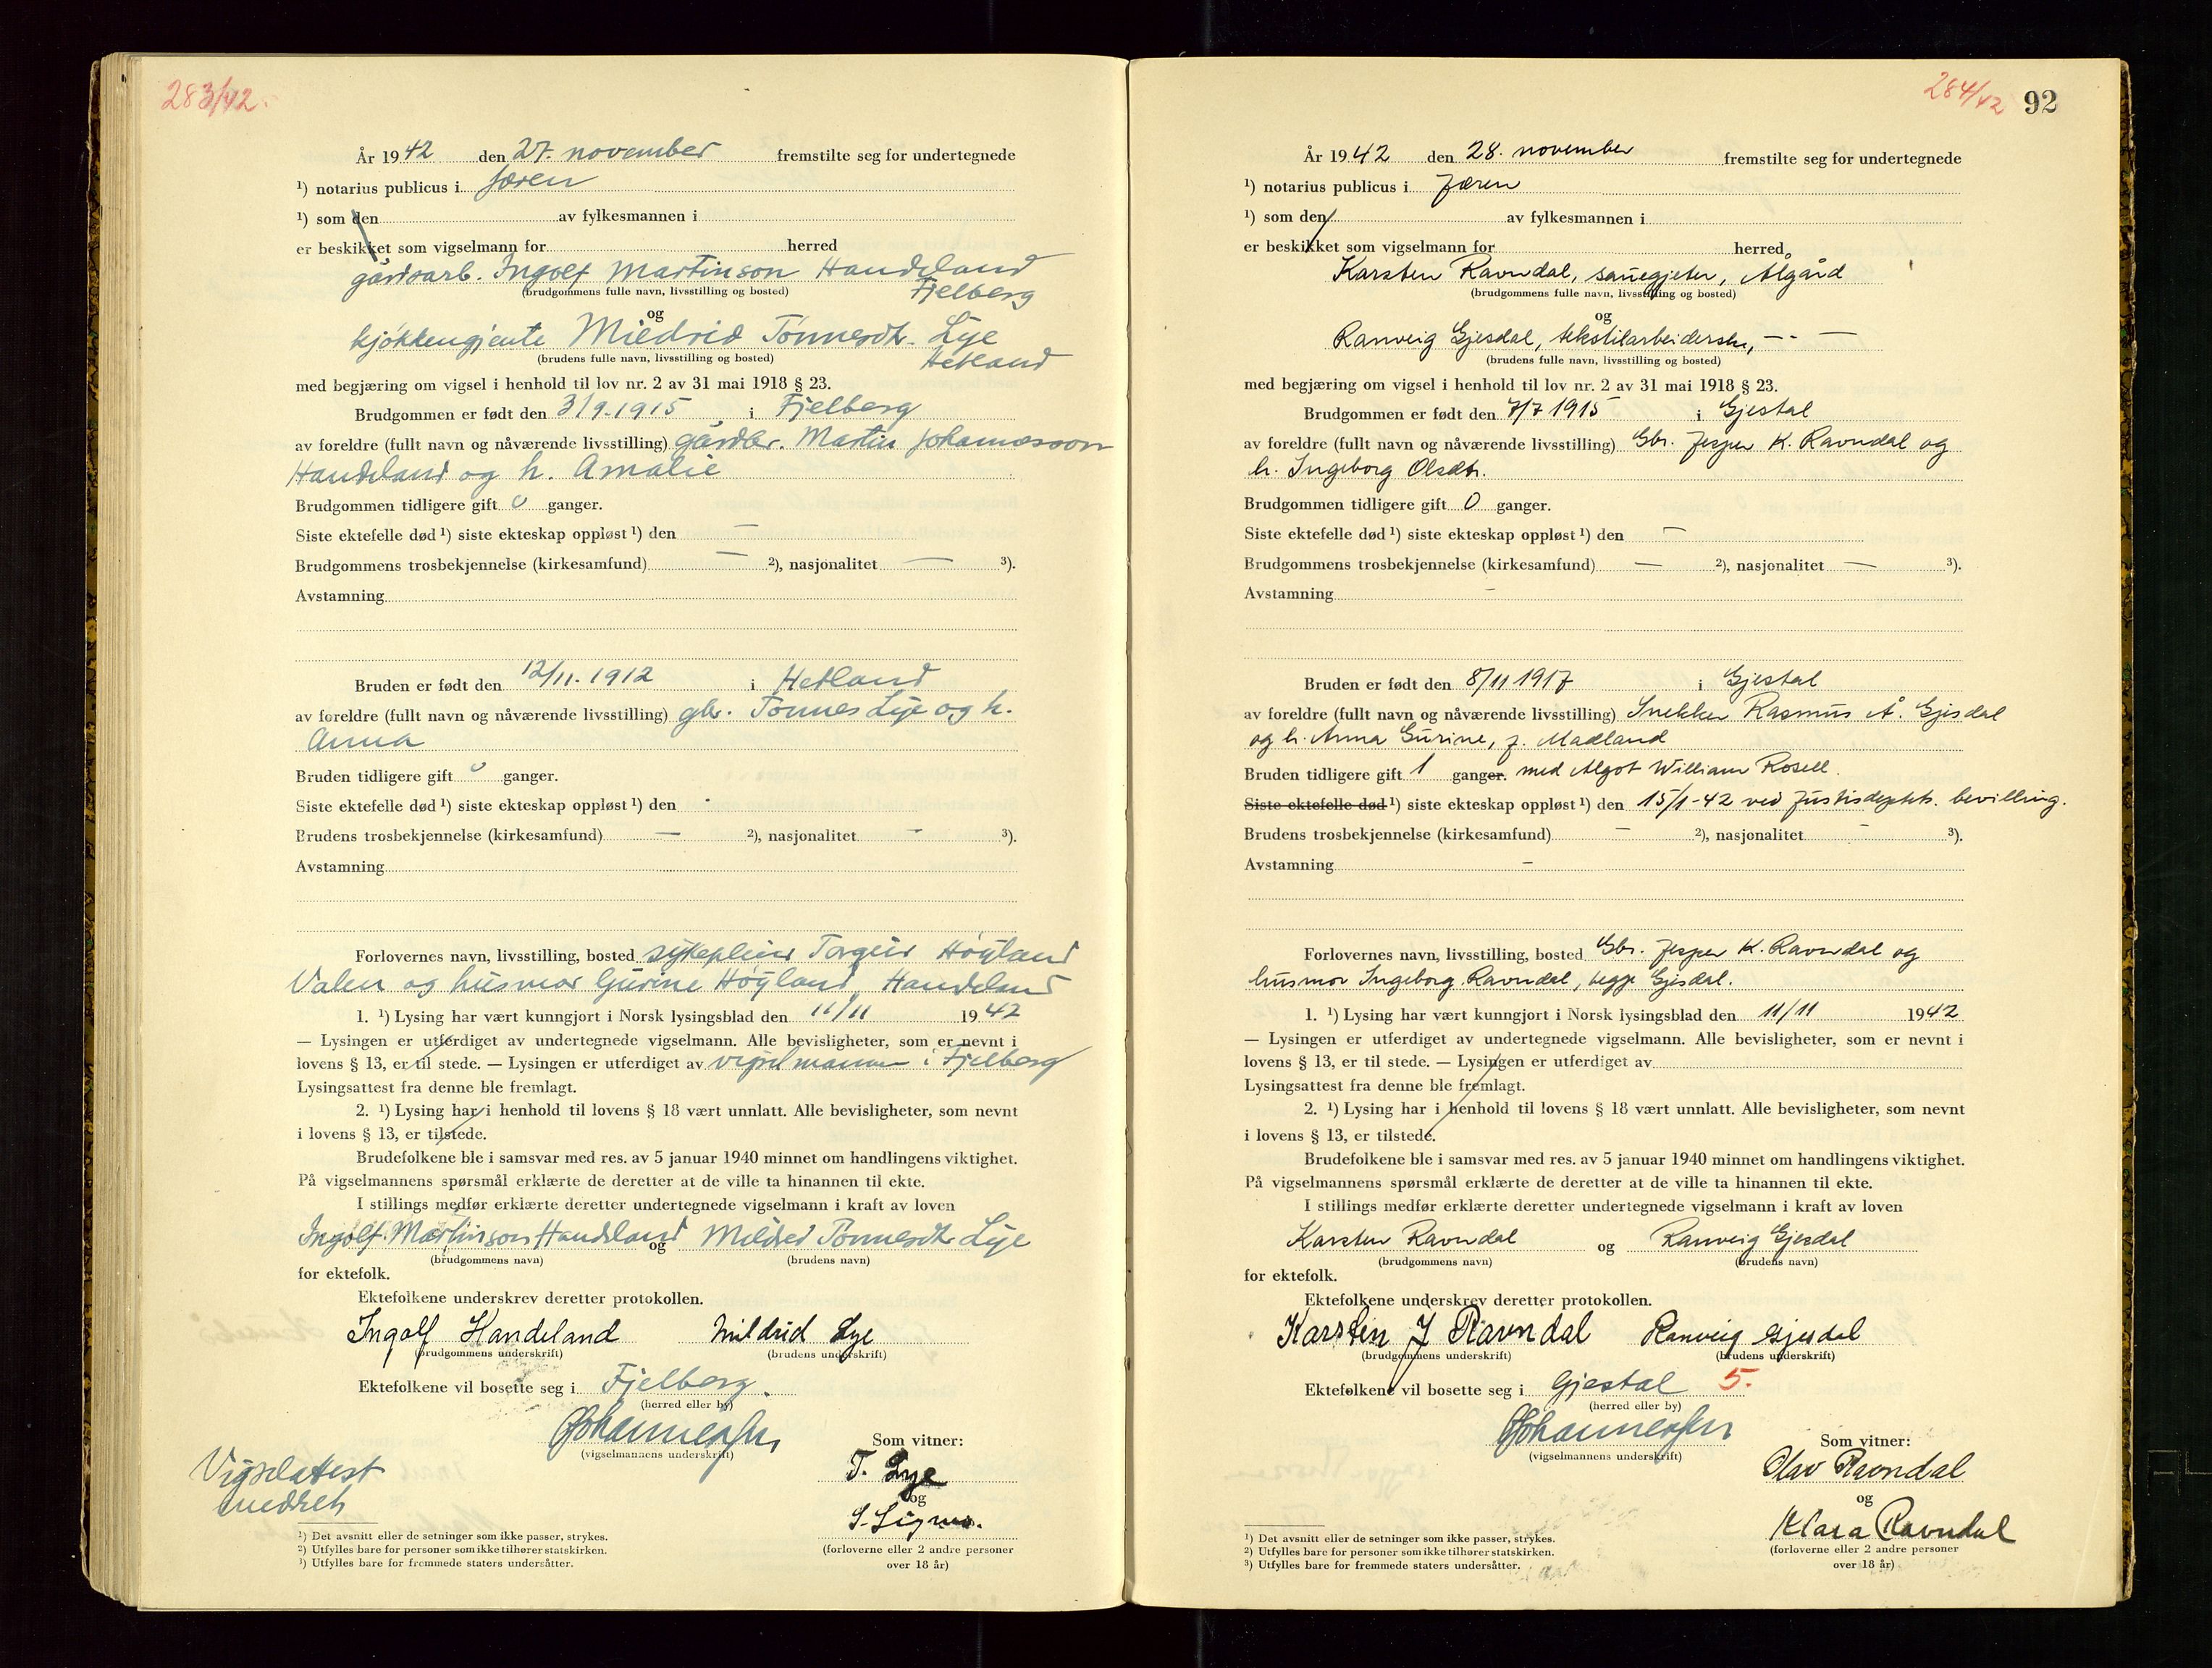 283/42.
År 1942 den 27. november fremstilte seg for undertegnede
¹) notarius publicus i Jæren
¹) som den av fylkesmannen i
er beskikket som vigselmann for herred
gårdsarb. Ingolf Martinson Handeland
Fjelberg
(brudgommens fulle navn, livsstilling og bosted)
og
kjøkkengjente Mildrid Tønnesdtr. Lye
Hetland
(brudens fulle navn, livsstilling og bosted)
med begjæring om vigsel i henhold til lov nr. 2 av 31 mai 1918 § 23.
Brudgommen er født den 3/9.1915 i Fjelberg
av foreldre (fullt navn og nåværende livsstilling) gårdbr. Martin Johannesson
Handeland og h. Amalie
Brudgommen tidligere gift 0 ganger.
Siste ektefelle død ¹) siste ekteskap oppløst ¹) den —
Brudgommens trosbekjennelse (kirkesamfund) — ²), nasjonalitet — ³).
Avstamning
Bruden er født den 12/11.1912 i Hetland
av foreldre (fullt navn og nåværende livsstilling) gbr. Tønnes Lye og h.
Anna
Bruden tidligere gift 0 ganger.
Siste ektefelle død ¹) siste ekteskap oppløst ¹) den -
Brudens trosbekjennelse (kirkesamfund) — ²), nasjonalitet - ³).
Avstamning
Forlovernes navn, livsstilling, bosted sykepleier Torgeir Høyland
Valen og husmor Gurine Høyland, Handeland
1. ¹) Lysing har vært kunngjort i Norsk lysingsblad den 11/11 1942
— Lysingen er utferdiget av undertegnede vigselmann. Alle bevisligheter, som er nevnt i
lovens § 13, er til stede. — Lysingen er utferdiget av vigselmannen i Fjelberg
Lysingsattest fra denne ble fremlagt.
2. ¹) Lysing har i henhold til lovens § 18 vært unnlatt. Alle bevisligheter, som nevnt
i lovens § 13, er tilstede.
Brudefolkene ble i samsvar med res. av 5 januar 1940 minnet om handlingens viktighet.
På vigselmannens spørsmål erklærte de deretter at de ville ta hinannen til ekte.
I stillings medfør erklærte deretter undertegnede vigselmann i kraft av loven
Ingolf Martinson Handeland og Mildred Tønnesdtr Lye
(brudgommens navn) (brudens navn)
for ektefolk.
Ektefolkene underskrev deretter protokollen.
Ingolf Handeland Mildrid Lye
(brudgommens underskrift) (brudens underskrift)
Ektefolkene vil bosette seg i Fjelberg.
(herred eller by)
Johannessen
(vigselmannens underskrift)
Som vitner:
T. Lye
og
S. Sigmo.
(forloverne eller 2 andre personer
over 18 år)
Vigselattest
meddelt
¹) Det avsnitt eller de setninger som ikke passer, strykes.
²) Utfylles bare for personer som ikke tilhører statskirken.
³) Utfylles bare for fremmede staters undersåtter.
284/42 92
År 1942 den 28. november fremstilte seg for undertegnede
¹) notarius publicus i Jæren
¹) som den av fylkesmannen i
er beskikket som vigselmann for herred
Karsten Ravndal, sauegjeter, Ålgård
(brudgommens fulle navn, livsstilling og bosted)
og
Ranveig Gjesdal, tekstilarbeiderske, - " -
(brudens fulle navn, livsstilling og bosted)
med begjæring om vigsel i henhold til lov nr. 2 av 31 mai 1918 § 23.
Brudgommen er født den 7/7 1915 i Gjestal
av foreldre (fullt navn og nåværende livsstilling) Gbr. Jesper K. Ravndal og
h. Ingeborg Olsdtr.
Brudgommen tidligere gift 0 ganger.
Siste ektefelle død ¹) siste ekteskap oppløst ¹) den —
Brudgommens trosbekjennelse (kirkesamfund) — ²), nasjonalitet — ³).
Avstamning -
Bruden er født den 8/11 1917 i Gjestal
av foreldre (fullt navn og nåværende livsstilling) Snekker Rasmus Å. Gjesdal
og h. Anna Gurine, f. Madland
Bruden tidligere gift 1 ganger. med Algot William Rosell.
Siste ektefelle død ¹) siste ekteskap oppløst ¹) den 15/1-42 ved Justisdeptets. bevilling.
Brudens trosbekjennelse (kirkesamfund) — ²), nasjonalitet - ³).
Avstamning -
Forlovernes navn, livsstilling, bosted Gbr. Jesper K. Ravndal og
husmor Ingeborg Ravndal, begge Gjesdal.
1. ¹) Lysing har vært kunngjort i Norsk lysingsblad den 11/11 1942
— Lysingen er utferdiget av undertegnede vigselmann. Alle bevisligheter, som er nevnt i
lovens § 13, er til stede. — Lysingen er utferdiget av
Lysingsattest fra denne ble fremlagt.
2. ¹) Lysing har i henhold til lovens § 18 vært unnlatt. Alle bevisligheter, som nevnt
i lovens § 13, er tilstede.
Brudefolkene ble i samsvar med res. av 5 januar 1940 minnet om handlingens viktighet.
På vigselmannens spørsmål erklærte de deretter at de ville ta hinannen til ekte.
I stillings medfør erklærte deretter undertegnede vigselmann i kraft av loven
Karsten Ravndal og Ranveig Gjesdal
(brudgommens navn) (brudens navn)
for ektefolk.
Ektefolkene underskrev deretter protokollen.
Karsten J Ravndal Ranveig Gjesdal
(brudgommens underskrift) (brudens underskrift)
Ektefolkene vil bosette seg i Gjestal 5.
(herred eller by)
Johannessen
(vigselmannens underskrift)
Som vitner:
Olav Ravndal
og
Klara Ravndal
(forloverne eller 2 andre personer
over 18 år)
¹) Det avsnitt eller de setninger som ikke passer, strykes.
²) Utfylles bare for personer som ikke tilhører statskirken.
³) Utfylles bare for fremmede staters undersåtter.